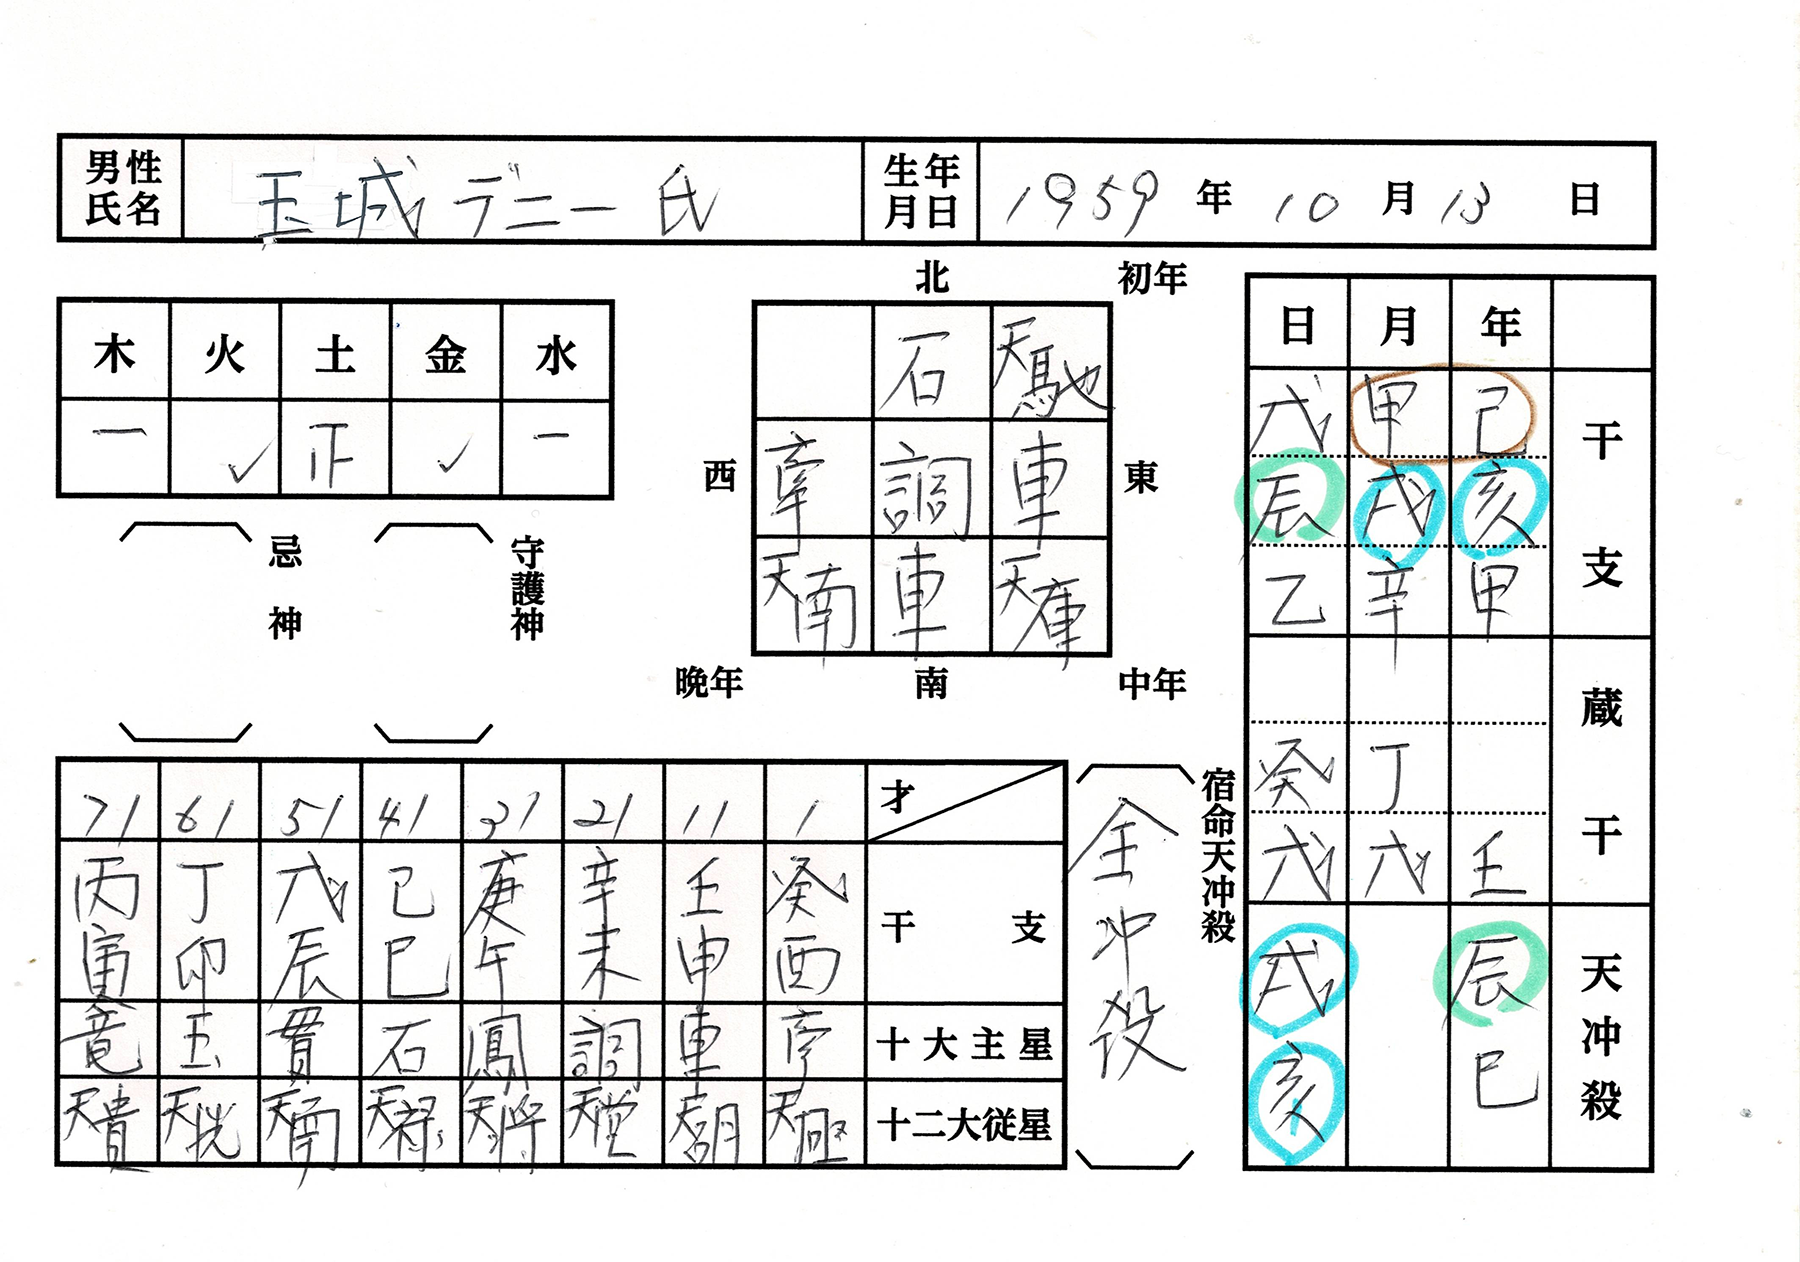 男性氏名 玉城デニー氏 生年月日 1959年10月13日
北 初年
木 火 土 金 水
一 ✓ 正 ✓ 一
忌神 守護神
石 天馳
西 牽 調 車 東
天南 車 天庫
晩年 南 中年
日 月 年
戊 甲 己 干
辰 戌 亥 支
乙 辛 甲
蔵干
癸 丁
戊 戊 壬
戌 辰 天冲殺
亥 巳
宿命天冲殺
全冲殺
71 61 51 41 31 21 11 1 才
丙 丁 戊 己 庚 辛 壬 癸 干支
寅 卯 辰 巳 午 未 申 酉
竜 玉 貫 石 鳳 調 車 牽 十大主星
天貴 天恍 天南 天禄 天将 天堂 天胡 天極 十二大従星